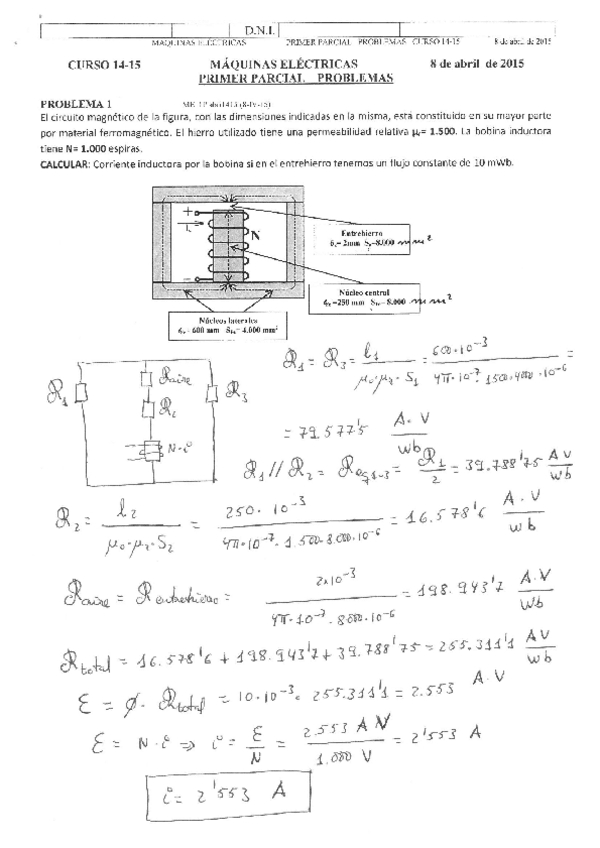 D.N.I.
MÁQUINAS ELÉCTRICAS PRIMER PARCIAL PROBLEMAS CURSO 14-15 8 de abril de 2015
CURSO 14-15 MÁQUINAS ELÉCTRICAS 8 de abril de 2015
PRIMER PARCIAL PROBLEMAS
PROBLEMA 1
El circuito magnético de la figura, con las dimensiones indicadas en la misma, está constituido en su mayor parte
por material ferromagnético. El hierro utilizado tiene una permeabilidad relativa μr= 1.500. La bobina inductora
tiene N= 1.000 espiras.
CALCULAR: Corriente inductora por la bobina si en el entrehierro tenemos un flujo constante de 10 mWb.
+
N
-
Entrehierro
= 2mm = 8.000 mm²
Núcleo central
=250 mm = 8.000 mm²
Núcleos laterales
= 600 mm = 4.000 mm²
R1 = R3 = l1 / μ0·μr·S1 = 600·10⁻³ / 4π·10⁻⁷·1500·4000·10⁻⁶ =
R1 Raire R2 N·i R3
= 79.577'5 A·V / Wb
R1 // R2 = Req1-3 = R1 / 2 = 39.788'75 AV / Wb
R2 = l2 / μ0·μr·S2 = 250·10⁻³ / 4π·10⁻⁷·1.500·8.000·10⁻⁶ = 16.578'6 A·V / Wb
Raire = Rentrehierro = 2x10⁻³ / 4π·10⁻⁷·8000·10⁻⁶ = 198.943'7 A·V / Wb
Rtotal = 16.578'6 + 198.943'7 + 39.788'75 = 255.311'1 AV / Wb
Ɛ = ϕ·Rtotal = 10·10⁻³·255.311'1 = 2.553 A·V
Ɛ = N·i ⇒ i = Ɛ / N = 2.553 AV / 1.000 V = 2'553 A
i = 2'553 A